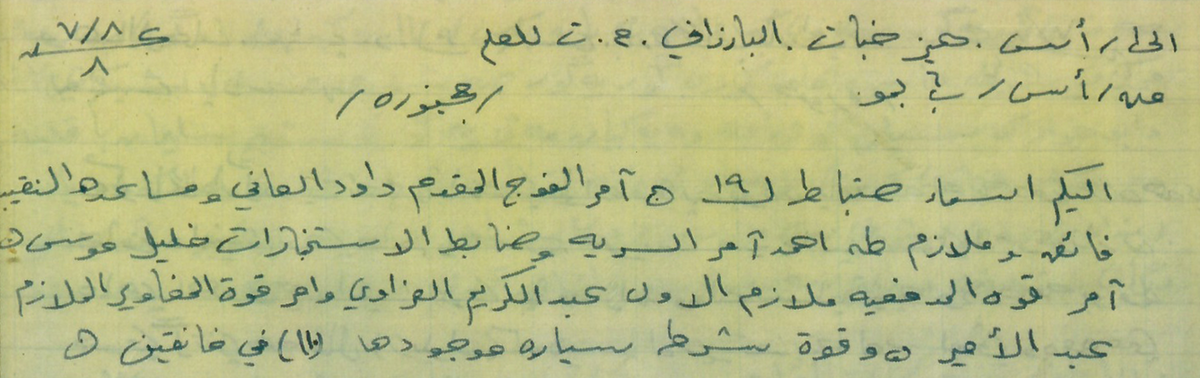 الى/ رأسس. هيز خبات. البارزاني. م. ت للعلم
٧/٨ ع
٨
منه/ رأسس/ ب بمو
/ جنوره /
اليكم اسماء ضباط ل١٩ ن آمر الفوج المقدم داود العاني ومساعده النقيب
فائق وملازم طه احمد آمر السريه وضابط الاستخبارات خليل موسى ن
آمر قوه المدفعيه ملازم الاول عبد الكريم العزاوي وامر قوة المغاوير الملازم
عبد الأمير ن وقوة شرطه سياره موجودها (١١٠) في خانقين ن